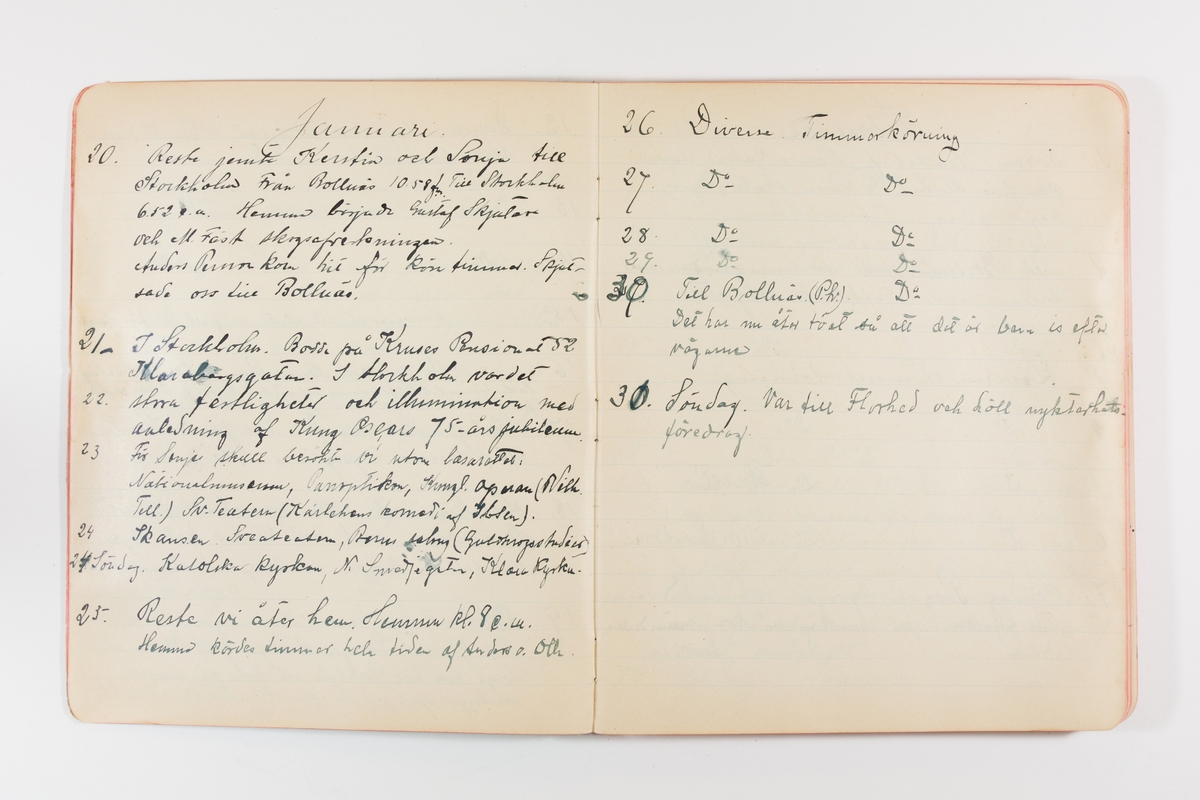 Januari.
20. Reste jemte Kerstin och Sonja till
Stockholm Från Bollnäs 10.58 f. Till Stockholm
6.52 e.m. Hemma började Gustaf Skjutare
och M. Fäst skogsafverkningen.
Anders Person kom hit för köra timmer. Skjut-
sade oss till Bollnäs.
21 I Stockholm. Bodde på Kruses Pensionat 52
Klarabergsgatan. I Stockholm var det
22. stora festligheter och illumination med
anledning af Kung Oscars 75-års jubileum.
23 För Sonjas skull besökte vi utom lasarettet:
Nationalmuseum, Panoptikon, Kungl. Operan (Wilh.
Tell) Sv. Teatern (Kärlekens komedi af Ibsen).
24 Skansen. Sveateatern, Berns salong (Guldkropsstudier)
24 Söndag. Katolska kyrkan, N. Smedjegatan, Klara Kyrka.
25. Reste vi åter hem. Hemma kl. 8 e.m.
Hemma kördes timmer hela tiden af Anders o. Olle.
26. Diverse. Timmerkörning
27. Do Do
28. Do Do
29. Do Do
30. Till Bollnäs. (P.h.) Do
Det har nu åter töat så att det är bara is efter
vägarne
30. Söndag. Var till Florhed och höll nykterhets-
föredrag.